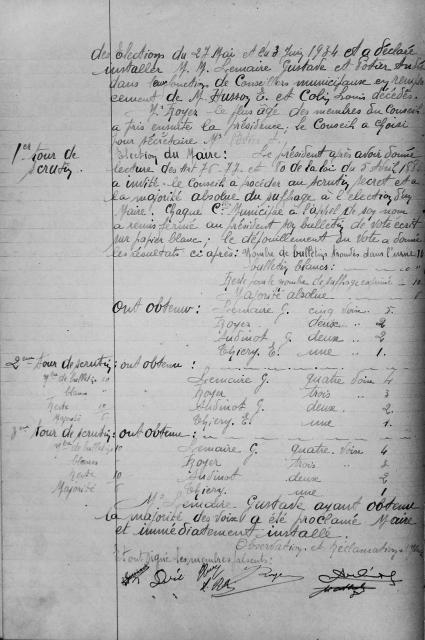 des Elections du 27 Mai et du 3 Juin 1934 et a déclaré
installer M. M. Lemaire Gustave et Potier
dans leur fonction de Conseillers municipaux en rempla
cement de M. Husson E. et Colin Louis décédés.
Mr Royer le plus âgé des membres du Conseil
a pris ensuite la présidence. le Conseil a choisi
pour secrétaire Mr
1er tour de
scrutin
Election du Maire: Le président après avoir donné
lecture des Art 76. 77. et 80 de la loi du 5 Avril 1884
a invité le Conseil à procéder au scrutin secret et à
la majorité absolue du suffrage à l'élection d'un
Maire. Chaque Cer Municipal à l'appel de son nom
a remis fermé au président son bulletin de vote écrit
sur papier blanc; le dépouillement du vote a donné
les résultats ci après: Nombre de bulletins trouvés dans l'urne 10
bulletins blancs:
Reste pour le nombre de suffrage exprimé 10
Majorité absolue
Ont obtenu: Lemaire G. cinq voix 5
Royer deux 2
Aubinot G. deux 2
Thiery. E. une 1.
2eme tour de scrutin: ont obtenu:
Lemaire G. quatre voix 4
bulletins 10
Royer trois 3
blancs
Aubinot G. deux 2
Reste 10
Thiery E. une 1
3e tour de scrutin: ont obtenu:
Lemaire G. quatre voix 4
bulletins 10
Royer trois 3
blancs
Aubinot deux 2
Reste 10
Thiery. une 1
Majorité
Mr Lemaire Gustave ayant obtenu
la majorité des voix a été proclamé Maire
et immédiatement installé.
Observation et Réclamation
Et ont signé les membres présents:
Royer